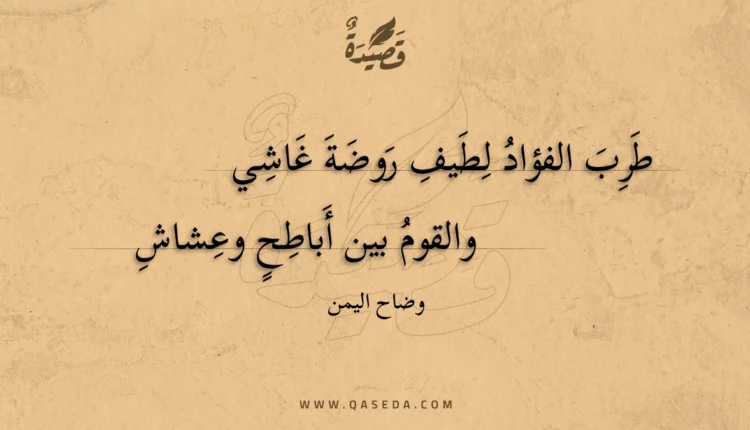 قَصِيْدَةٌ
طَرِبَ الفؤادُ لِطَيفِ رَوضَةَ غَاشِي
والقومُ بين أَباطِحٍ وعِشاشِ
وضاح اليمن
WWW.QASEDA.COM